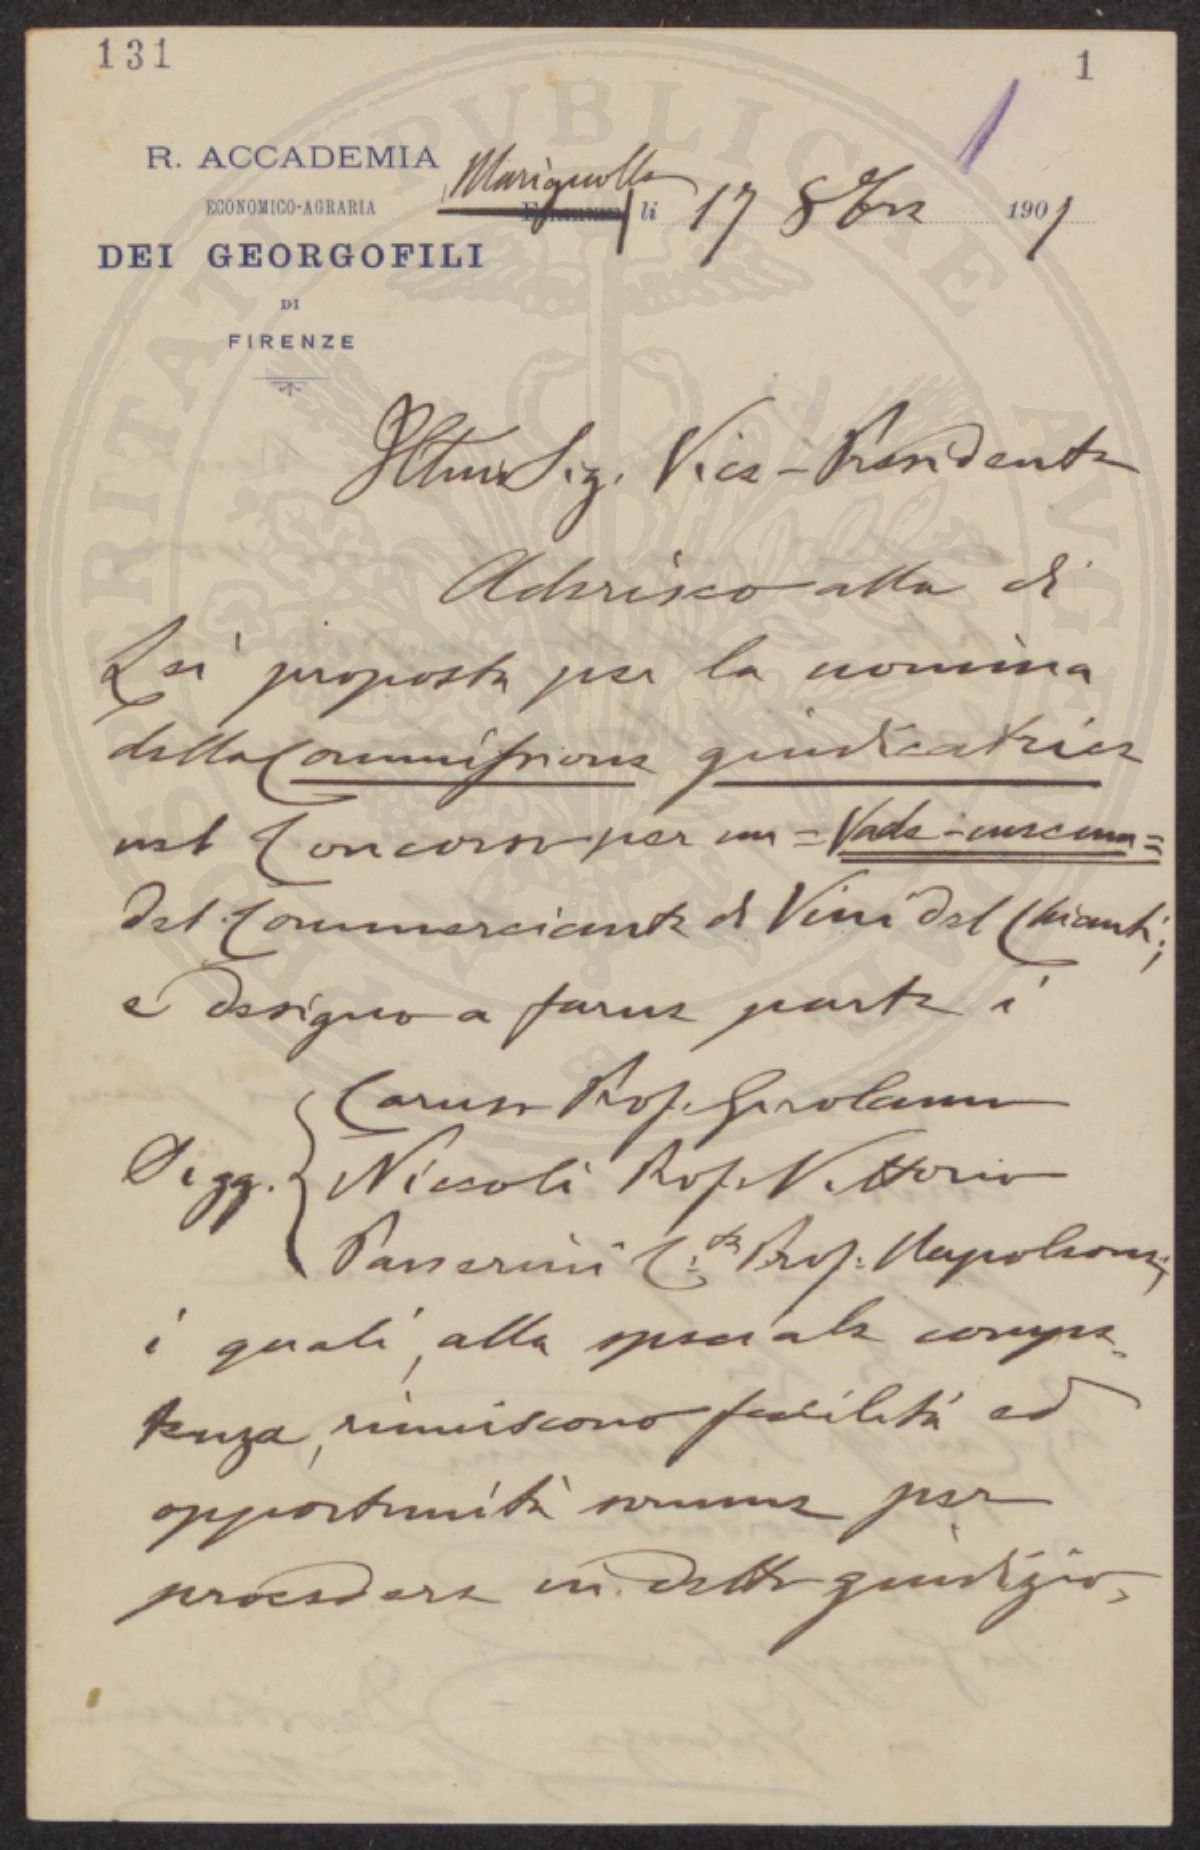 131
1
R. ACCADEMIA
ECONOMICO-AGRARIA
DEI GEORGOFILI
DI
FIRENZE
Marignolle li 17 8bre 1901
Illmo Sig. Vice-Presidente
Aderisco alla di
Lei proposta per la nomina
della Commissione giudicatrice
nel Concorso per un = Vade-mecum =
del Commerciante di Vini del Chianti;
e designo a farne parte i
Sigg. { Caruso Prof. Gerolamo
Niccoli Prof. Vittorio
Passerini C.te Prof. Napoleone;
i quali, alla speciale compe-
tenza, riuniscono facilità ed
opportunità somme per
procedere in detto giudizio.
PROSPERITATI PUBLICAE AUGENDAE